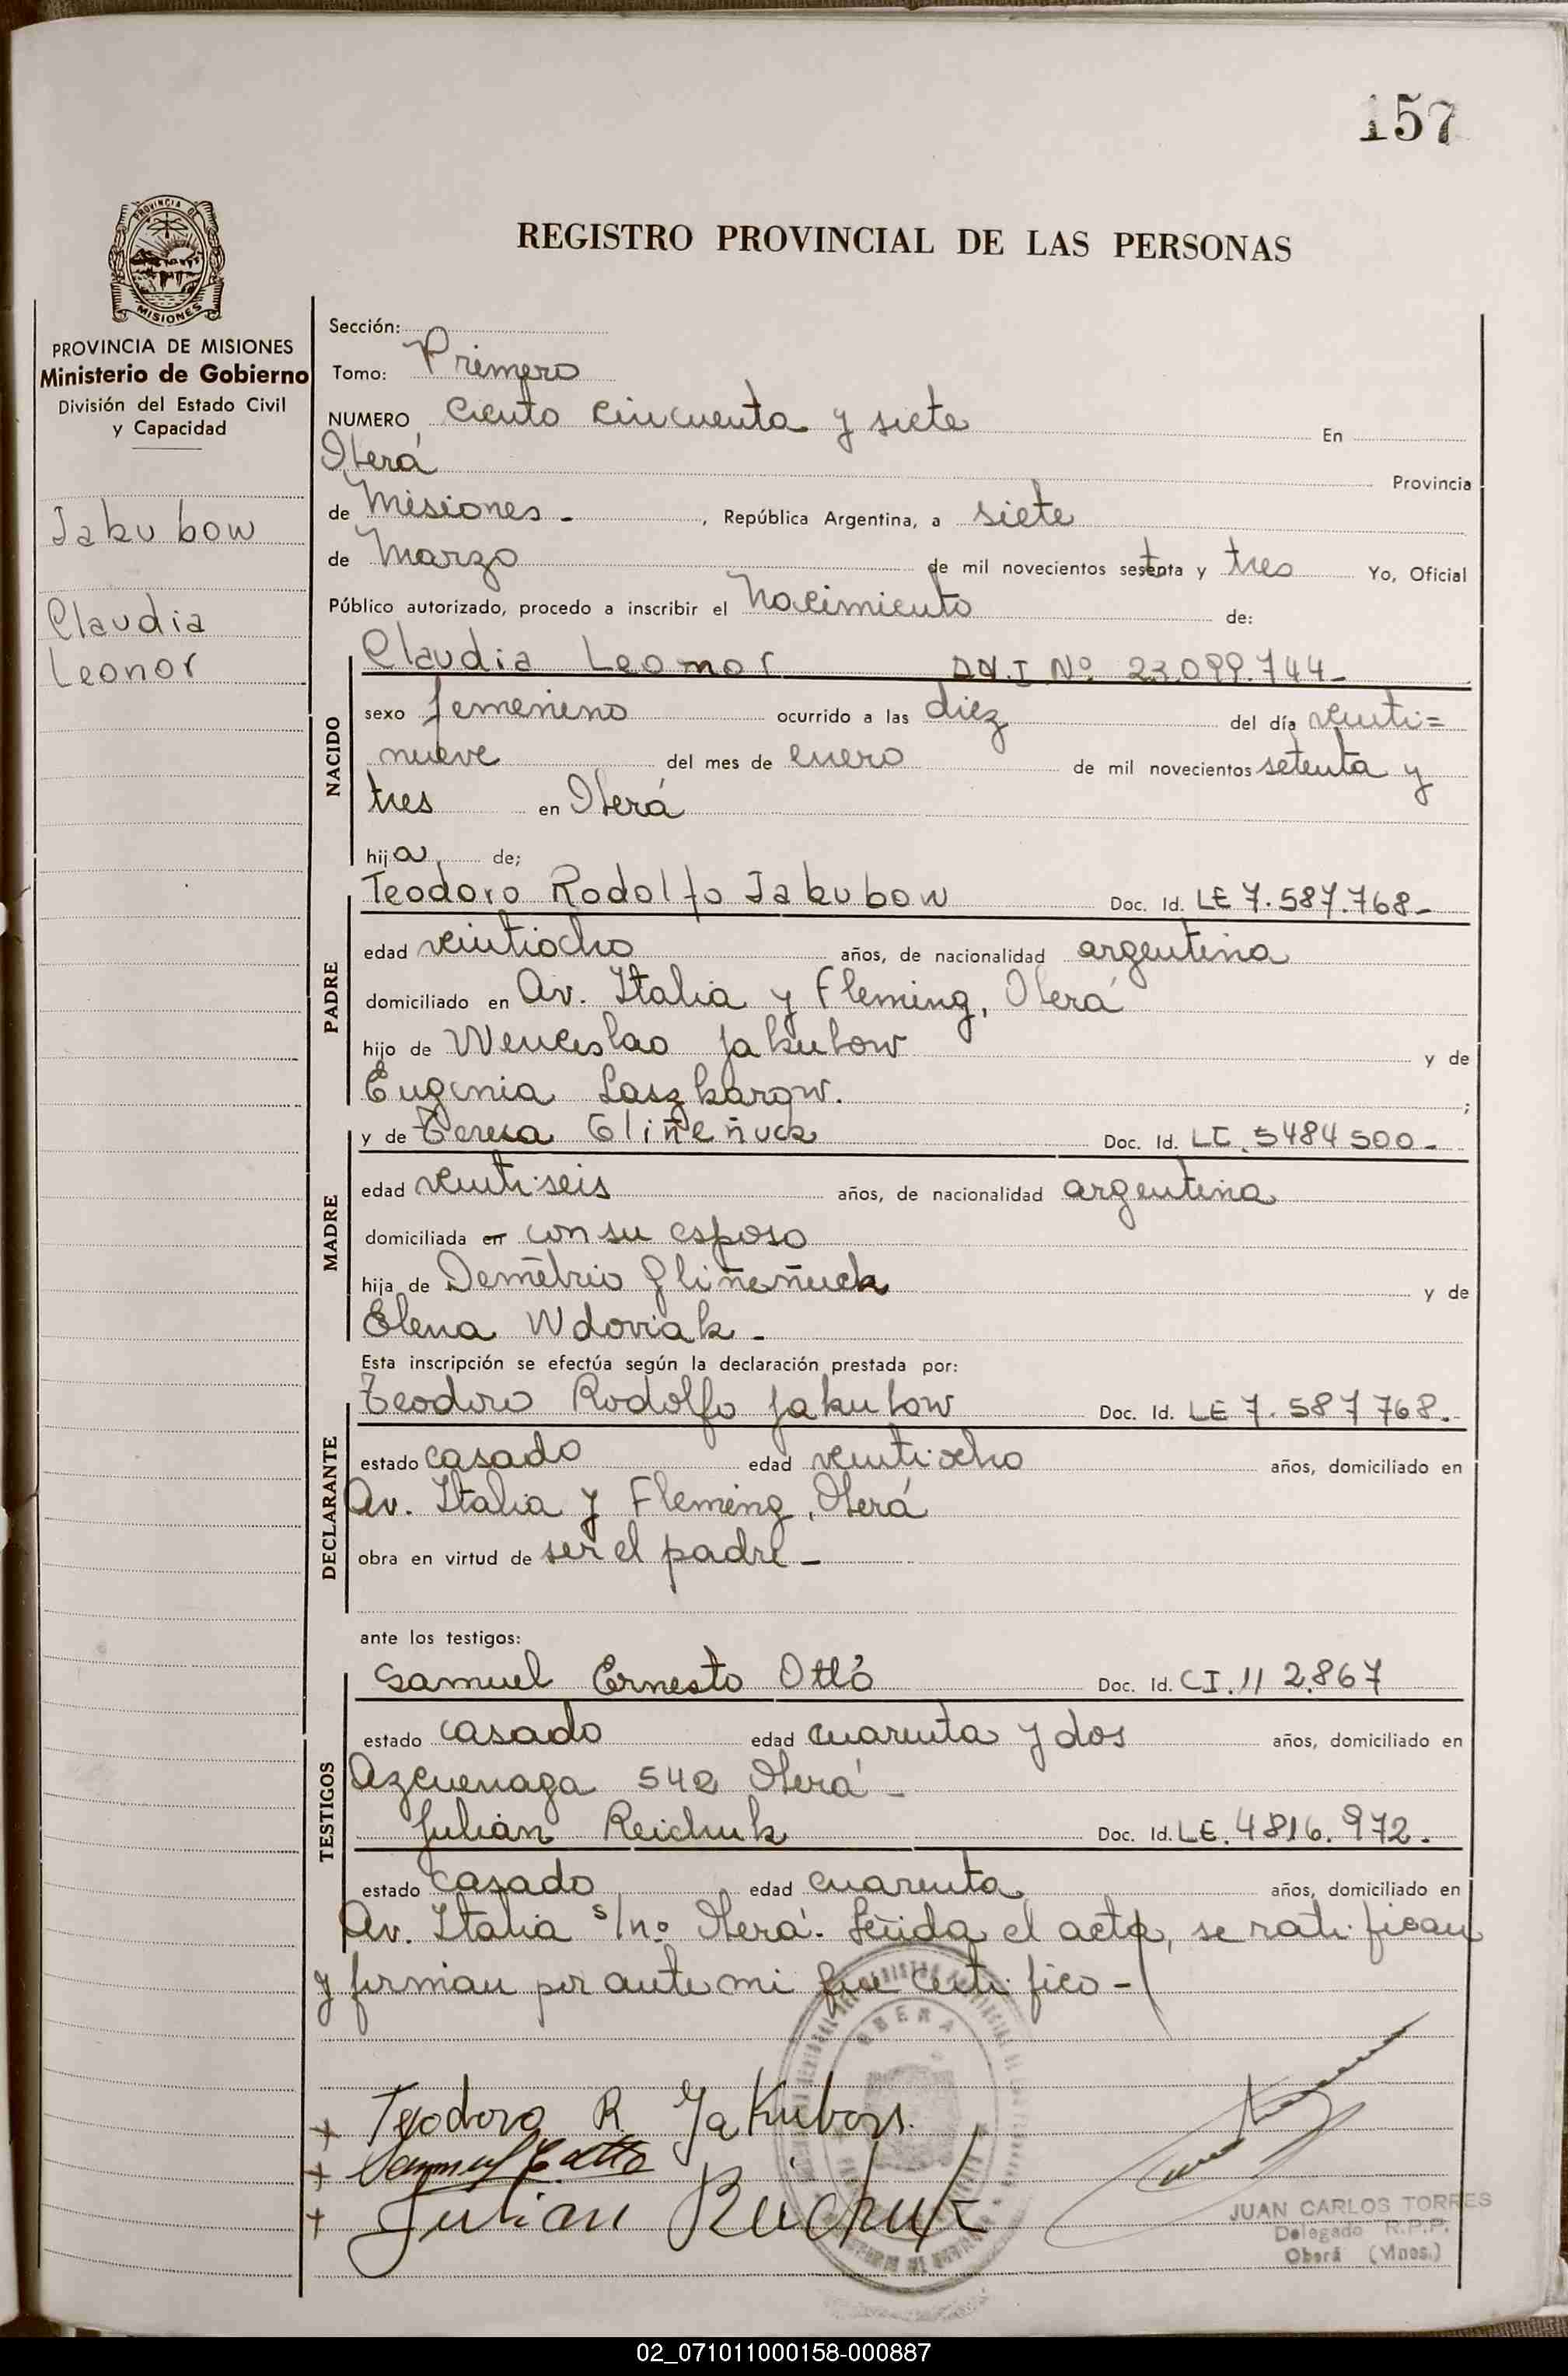 157
REGISTRO PROVINCIAL DE LAS PERSONAS
PROVINCIA DE
MISIONES
PROVINCIA DE MISIONES
Ministerio de Gobierno
División del Estado Civil
y Capacidad
Jakubow
Claudia
Leonor
Sección:
Tomo: Primero
NUMERO Ciento cincuenta y siete En
Oberá Provincia
de Misiones - , República Argentina, a siete
de Marzo de mil novecientos setenta y tres Yo, Oficial
Público autorizado, procedo a inscribir el Nacimiento de:
NACIDO
Claudia Leonor D.N.I Nº 23.099.744-
sexo femenino ocurrido a las diez del día veinti=
nueve del mes de enero de mil novecientos setenta y
tres en Oberá
hija de;
PADRE
Teodoro Rodolfo Jakubow Doc. Id. LE 7.587.768-
edad veintiocho años, de nacionalidad argentina
domiciliado en Av. Italia y Fleming, Oberá
hijo de Wenceslao Jakubow y de
Eugenia Laszkarow. ;
MADRE
y de Teresa Gliñeñuck Doc. Id. LC 5484500-
edad veintiseis años, de nacionalidad argentina
domiciliada en con su esposo
hija de Demétrio Gliñeñuck y de
Elena Wdoviak -
Esta inscripción se efectúa según la declaración prestada por:
DECLARANTE
Teodoro Rodolfo Jakubow Doc. Id. LE 7.587768.-
estado casado edad veintiocho años, domiciliado en
Av. Italia y Fleming, Oberá
obra en virtud de ser el padre -
ante los testigos:
TESTIGOS
Samuel Ernesto Ottó Doc. Id. CI. 112.867
estado casado edad cuarenta y dos años, domiciliado en
Azcuenaga 542 Oberá -
Julián Reichuk Doc. Id. LE. 4816.972.-
estado casado edad cuarenta años, domiciliado en
Av. Italia s/nº Oberá. Leída el acta, se ratifican
y firman por ante mi que certifico -
OBERA
Teodoro R Jakubow.
Samuel E Otto
Julian Reichuk
JUAN CARLOS TORRES
Delegado R.P.P.
Oberá (Mnes.)
02_071011000158-000887